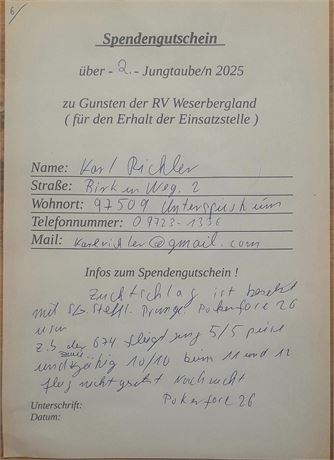 6/
Spendengutschein
über - 2.- Jungtaube/n 2025
zu Gunsten der RV Weserbergland
( für den Erhalt der Einsatzstelle )
Name: Karl Richler
Straße: Birken Weg. 2
Wohnort: 97509
Telefonnummer: 09723-1336
Mail: karlrichler@gmail.com
Infos zum Spendengutschein !
Zuchtschlag ist besetzt
mit Pokerface 26
usw
z.b der 674 fliegt jung 5/5 preise
und jährig 10/10 beim 11 und 12
flog nicht gesetzt Nachzucht
Pokerface 26
Unterschrift:
Datum: